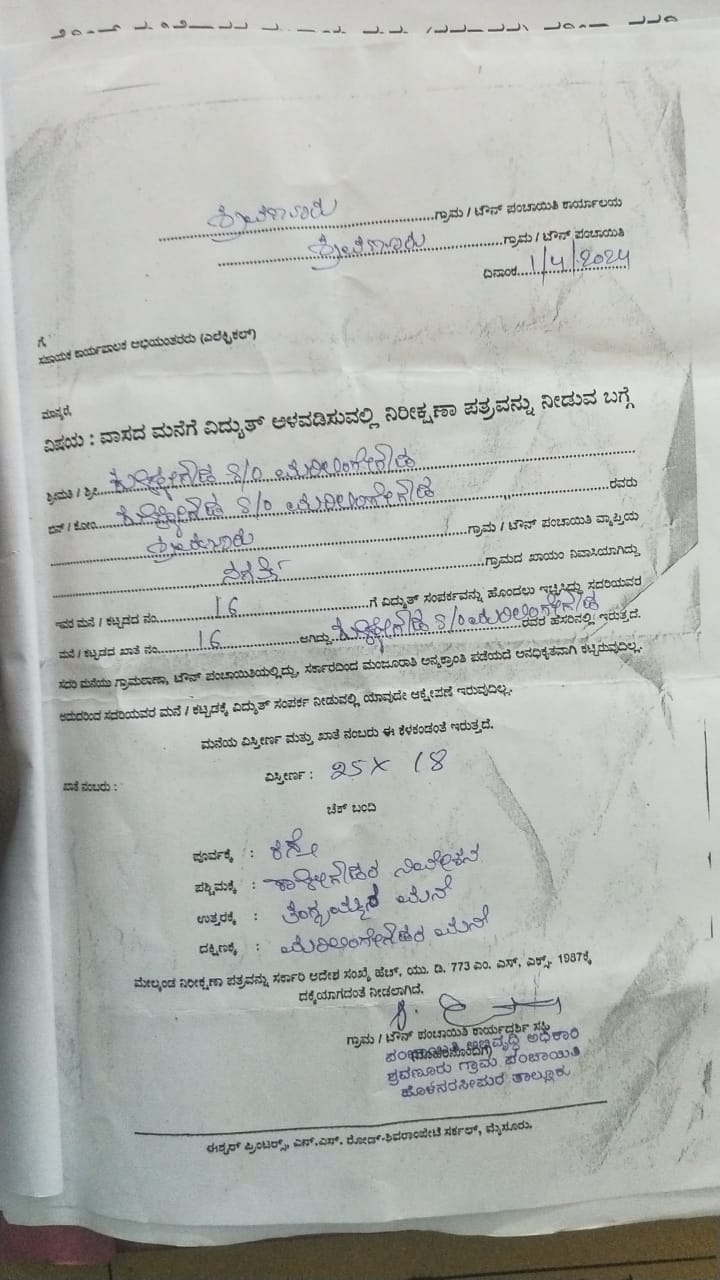 ಶ್ರವಣೂರು ಗ್ರಾಮ / ಟೌನ್ ಪಂಚಾಯಿತಿ ಕಾರ್ಯಾಲಯ
ಶ್ರವಣೂರು ಗ್ರಾಮ / ಟೌನ್ ಪಂಚಾಯಿತಿ
ದಿನಾಂಕ 1/4/2024
ಗೆ,
ಸಹಾಯಕ ಕಾರ್ಯಪಾಲಕ ಅಭಿಯಂತರರು (ಎಲೆಕ್ಟ್ರಿಕಲ್)
ಮಾನ್ಯರೆ,
ವಿಷಯ : ವಾಸದ ಮನೆಗೆ ವಿದ್ಯುತ್ ಅಳವಡಿಸುವಲ್ಲಿ ನಿರೀಕ್ಷಣಾ ಪತ್ರವನ್ನು ನೀಡುವ ಬಗ್ಗೆ
ಶ್ರೀಮತಿ / ಶ್ರೀ S/O
ಬಿನ್ / ಕೋಂ S/O ರವರು
ಗ್ರಾಮ / ಟೌನ್ ಪಂಚಾಯಿತಿ ವ್ಯಾಪ್ತಿಯ
ಗ್ರಾಮದ ಖಾಯಂ ನಿವಾಸಿಯಾಗಿದ್ದು
ಇವರ ಮನೆ / ಕಟ್ಟಡದ ನಂ. 16 ಗೆ ವಿದ್ಯುತ್ ಸಂಪರ್ಕವನ್ನು ಹೊಂದಲು ಇಚ್ಛಿಸಿದ್ದು ಸದರಿಯವರ
ಮನೆ / ಕಟ್ಟಡದ ಖಾತೆ ನಂ. 16 ಆಗಿದ್ದು S/O ರವರ ಹೆಸರಿನಲ್ಲಿ ಇರುತ್ತದೆ.
ಸದರಿ ಮನೆಯು ಗ್ರಾಮಠಾಣಾ, ಟೌನ್ ಪಂಚಾಯಿತಿಯಲ್ಲಿದ್ದು, ಸರ್ಕಾರದಿಂದ ಮಂಜೂರಾತಿ ಅನ್ಯಕ್ರಾಂತಿ ಪಡೆಯದೆ ಅನಧಿಕೃತವಾಗಿ ಕಟ್ಟಿರುವುದಿಲ್ಲ.
ಆದುದರಿಂದ ಸದರಿಯವರ ಮನೆ / ಕಟ್ಟಡಕ್ಕೆ ವಿದ್ಯುತ್ ಸಂಪರ್ಕ ನೀಡುವಲ್ಲಿ ಯಾವುದೇ ಆಕ್ಷೇಪಣೆ ಇರುವುದಿಲ್ಲ.
ಮನೆಯ ವಿಸ್ತೀರ್ಣ ಮತ್ತು ಖಾತೆ ನಂಬರು ಈ ಕೆಳಕಂಡಂತೆ ಇರುತ್ತದೆ.
ಖಾತೆ ನಂಬರು : ವಿಸ್ತೀರ್ಣ : 25 X 18
ಚೆಕ್ ಬಂದಿ
ಪೂರ್ವಕ್ಕೆ : ರಸ್ತೆ
ಪಶ್ಚಿಮಕ್ಕೆ : ನಿವೇಶನ
ಉತ್ತರಕ್ಕೆ : ಮನೆ
ದಕ್ಷಿಣಕ್ಕೆ : ಮನೆ
ಮೇಲ್ಕಂಡ ನಿರೀಕ್ಷಣಾ ಪತ್ರವನ್ನು ಸರ್ಕಾರಿ ಆದೇಶ ಸಂಖ್ಯೆ ಹೆಚ್. ಯು. ಡಿ. 773 ಎಂ. ಎಸ್. ಎಕ್ಸ್. 1987ಕ್ಕೆ
ದಕ್ಕೆಯಾಗದಂತೆ ನೀಡಲಾಗಿದೆ.
ಗ್ರಾಮ / ಟೌನ್ ಪಂಚಾಯಿತಿ ಕಾರ್ಯದರ್ಶಿ ಸಹಿ
(ಮೊಹರಿನೊಂದಿಗೆ)
ಪಂಚಾಯಿತಿ ಅಭಿವೃದ್ಧಿ ಅಧಿಕಾರಿ
ಶ್ರವಣೂರು ಗ್ರಾಮ ಪಂಚಾಯಿತಿ
ಹೊಳೆನರಸೀಪುರ ತಾಲ್ಲೂಕು
ಈಶ್ವರ್ ಪ್ರಿಂಟರ್ಸ್, ಎನ್.ಎಸ್. ರೋಡ್-ಶಿವರಾಂಪೇಟೆ ಸರ್ಕಲ್, ಮೈಸೂರು.